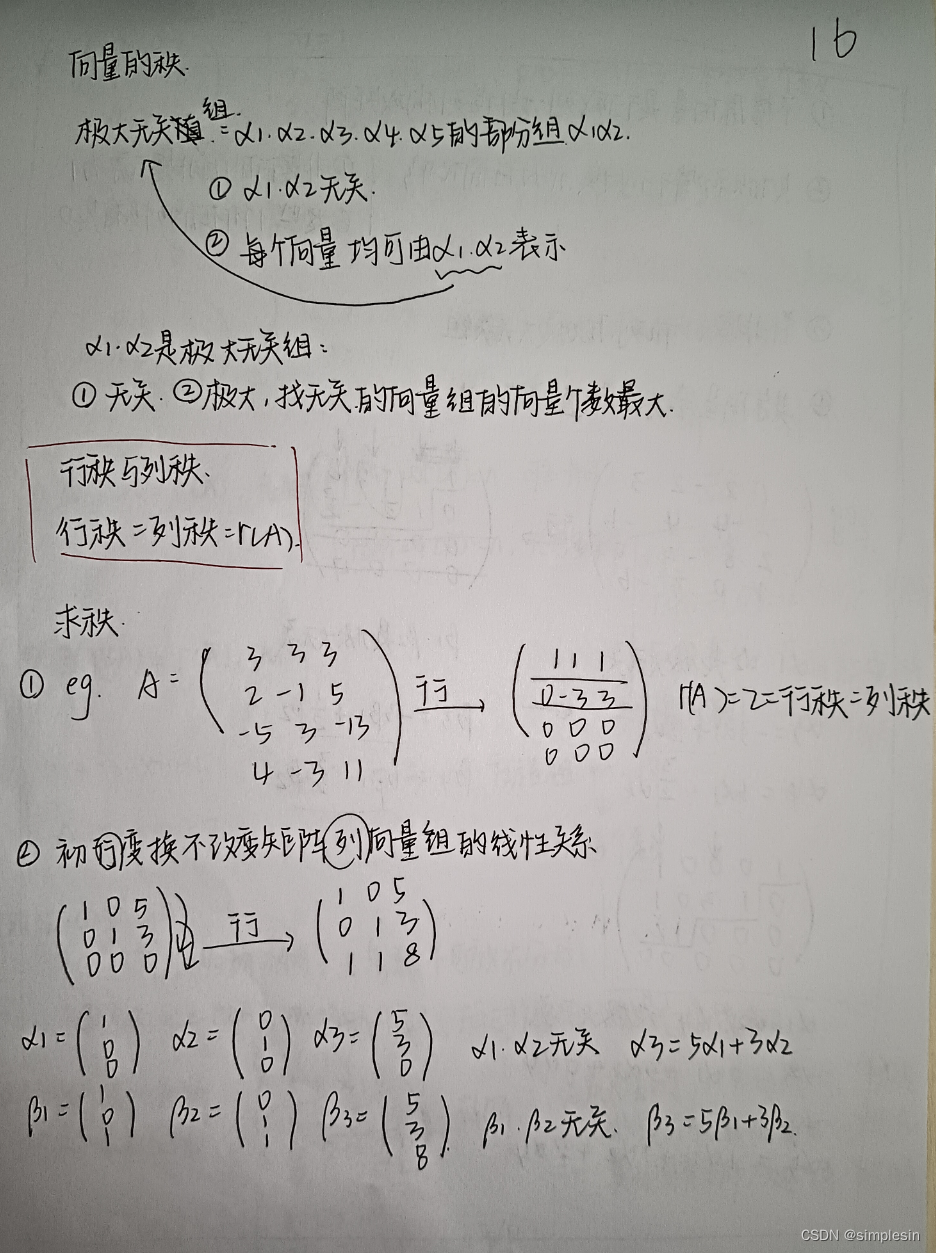 16
向量的秩.
极大无关组:=α1.α2.α3.α4.α5的部份组α1α2.
① α1.α2无关.
② 每个向量均可由α1.α2表示
α1.α2是极大无关组:
① 无关. ②极大,找无关的向量组的向量个数最大.
行秩与列秩.
行秩=列秩=r(A).
求秩.
① eg. A= ( 3 3 3 行 ( 1 1 1 r(A)=2=行秩=列秩
2 -1 5 0 -3 3
-5 3 -13 0 0 0
4 -3 11 ) 0 0 0 )
② 初行变换不改变矩阵列向量组的线性关系
( 1 0 5 行 ( 1 0 5
0 1 3 0 1 3
0 0 0 ) 1 1 8 )
α1=(1 0 0) α2=(0 1 0) α3=(5 3 0) α1.α2无关 α3=5α1+3α2
β1=(1 0 1) β2=(0 1 1) β3=(5 3 8) β1.β2无关. β3=5β1+3β2.
CSDN @simplesin